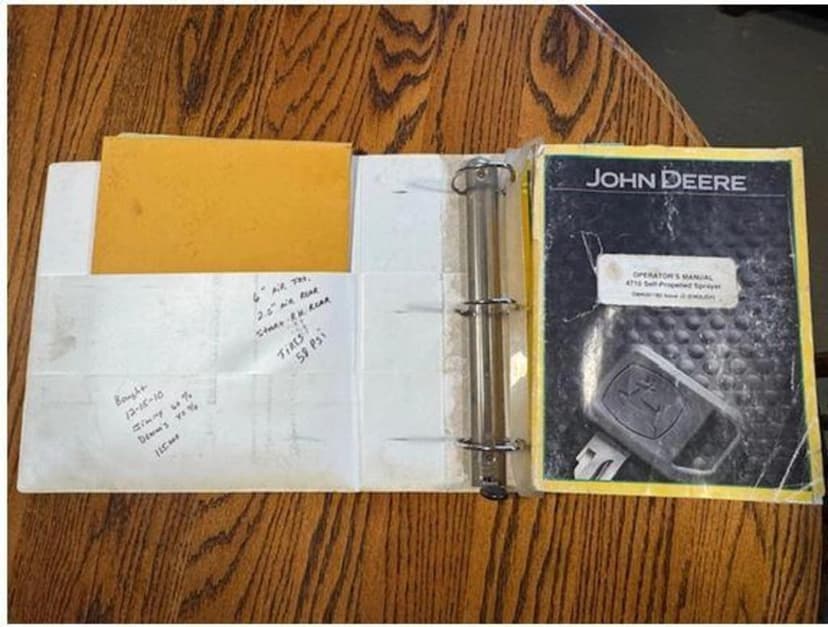 6" air
2.5" air rear
R.H. rear
Tires
58 psi
Bought
12-15-10
Jimmy 60 %
Dennis 40 %
JOHN DEERE
OPERATOR'S MANUAL
4710 Self-Propelled Sprayer
(ENGLISH)